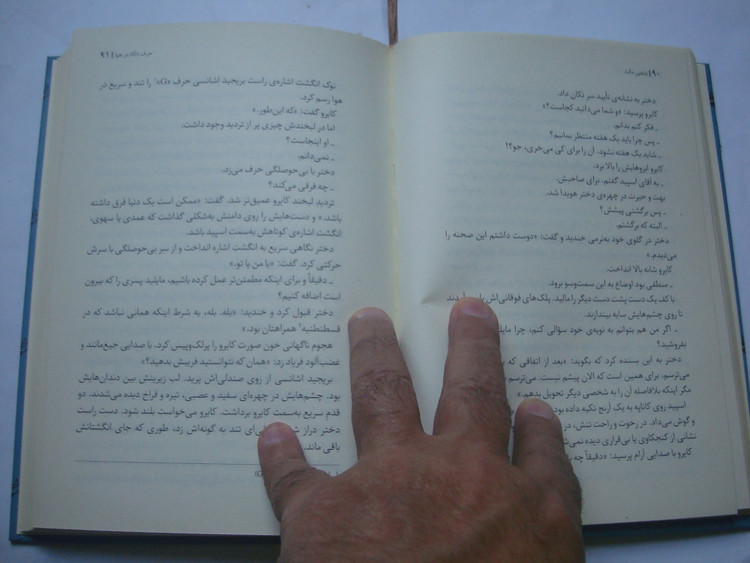 ۹۰ | شاهین مالت
دختر به نشانه‌ی تأیید سر تکان داد.
کایرو پرسید: «و شما می‌دانید کجاست؟»
ـ فکر کنم بدانم.
ـ پس چرا باید یک هفته منتظر بمانیم؟
ـ شاید یک هفته نشود. آن را برای کی می‌خری، جو؟
کایرو ابروهایش را بالا برد.
ـ به آقای اسپید گفتم. برای صاحبش.
بهت و حیرت در چهره‌ی دختر هویدا شد.
ـ پس برگشتی پیشش؟
ـ البته که برگشتم.
دختر در گلوی خود به‌نرمی خندید و گفت: «دوست داشتم این صحنه را
می‌دیدم.»
کایرو شانه بالا انداخت.
ـ منطقی بود اوضاع به این سمت‌وسو برود.
با کف یک دست پشت دست دیگر را مالید. پلک‌های فوقانی‌اش پایین آمدند
تا روی چشم‌هایش سایه بیندازند.
ـ اگر من هم بتوانم به نوبه‌ی خود سؤالی کنم، چرا مایلید
بفروشید؟
دختر به این بسنده کرد که بگوید: «بعد از اتفاقی که
می‌ترسم. برای همین است که الان پیشم نیست. می‌ترسم
مگر اینکه بلافاصله آن را به شخصی دیگر تحویل بدهم.»
اسپید روی کاناپه به یک آرنج تکیه داده بود
و گوش می‌داد. در رخوت و راحت تنش، در
نشانی از کنجکاوی یا بی‌قراری دیده نمی‌شد
کایرو با صدایی آرام پرسید: «دقیقاً چه
حرف G در هوا | ۹۱
نوک انگشت اشاره‌ی راست بریجید اشانسی حرف «G»۱ را تند و سریع در
هوا رسم کرد.
کایرو گفت: «که این‌طور.»
اما در لبخندش چیزی پر از تردید وجود داشت.
ـ او اینجاست؟
ـ نمی‌دانم.
دختر با بی‌حوصلگی حرف می‌زد.
ـ چه فرقی می‌کند؟
تردید لبخند کایرو عمیق‌تر شد. گفت: «ممکن است یک دنیا فرق داشته
باشد.» و دست‌هایش را روی دامنش به‌شکلی گذاشت که عمدی یا سهوی،
انگشت اشاره‌ی کوتاهش به‌سمت اسپید باشد.
دختر نگاهی سریع به انگشت اشاره انداخت و از سر بی‌حوصلگی با سرش
حرکتی کرد. گفت: «یا من یا تو.»
ـ دقیقاً و برای اینکه مطمئن‌تر عمل کرده باشیم، مایلید پسری را که بیرون
است اضافه کنیم؟
دختر قبول کرد و خندید: «بله. بله، به شرط اینکه همانی نباشد که در
قسطنطنیه۲ همراهتان بود.»
هجوم ناگهانی خون صورت کایرو را پرلک‌وپیس کرد. با صدایی جیغ‌مانند و
غضب‌آلود فریاد زد: «همان که نتوانستید فریبش بدهید؟»
بریجید اشانسی از روی صندلی‌اش پرید. لب زیرینش بین دندان‌هایش
بود. چشم‌هایش در چهره‌ای سفید و عصبی، تیره و فراخ دیده می‌شدند. دو
قدم سریع به‌سمت کایرو برداشت. کایرو می‌خواست بلند شود. دست راست
دختر دراز شد سیلی‌ای تند به گونه‌اش زد، طوری که جای انگشتانش
باقی ماند.